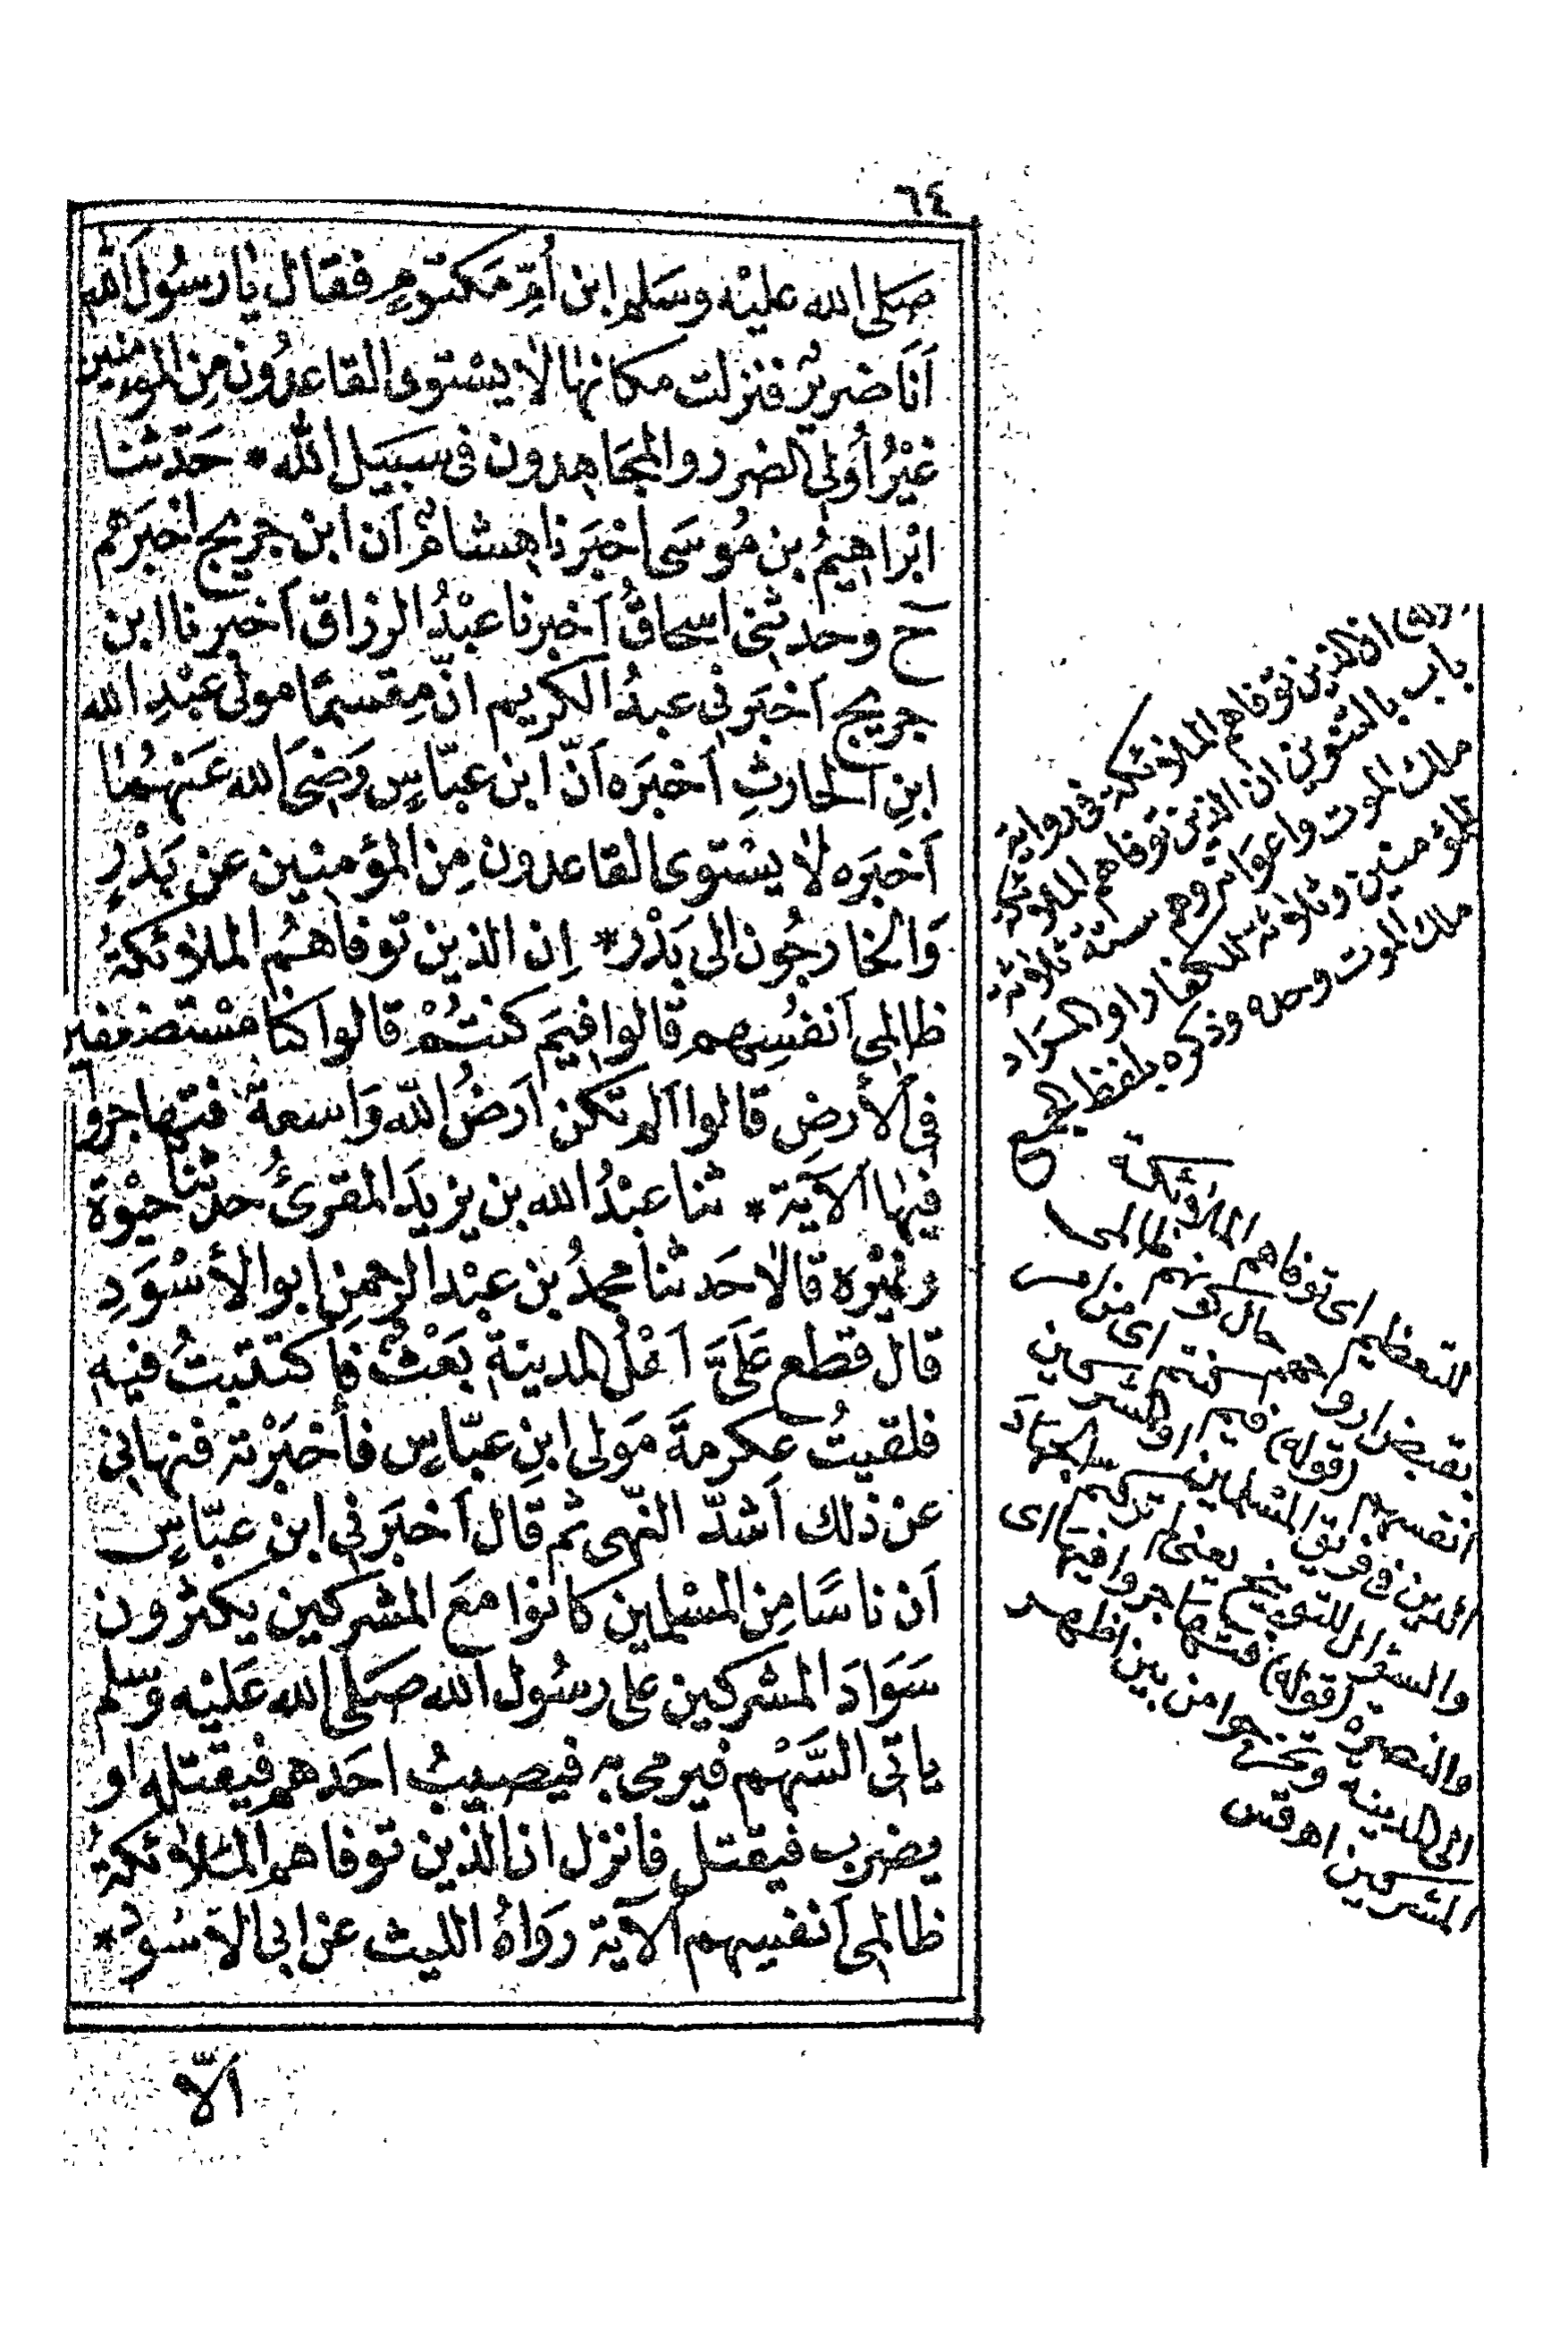 ٦٤
صَلى الله عليْه وسَلم ابن اُمِّ مَكتوُمٍ فقال يا رَسُول الله
اَنَا ضريرٌ فنزلت مكانها لا يسْتوى القاعدُون مِن المؤمنين
غيْرُ أولى الضرر والمجَاهدون فى سَبيل الله * حَدّثنا
ابْراهيمُ بن مُوسَى اخبَرنا هشامٌ اَن ابن جريج اخبَرهم
ح وحدثنى اسحاقُ اَخبرنا عبْدُ الرزاق اَخبرنا ابن
جريج اَخبَرنى عبدُ الكريم انّ مِقسمًا مولى عبْدِ الله
ابنِ الحارثِ اَخبَره اَنّ ابن عبّاسٍ رَضىَ الله عَنهُما
اَخبَره لا يسْتوى القاعدون مِن المؤمنين عن بَدْرٍ
وَالخارجُون الى بَدْر * اِن الذين توفاهُم الملائكةُ
ظالمى اَنفسِهم قالوا فيمَ كنتُمْ قالوا كنا مسْتضعفين
فى الأرضِ قالوا اَلم تكن اَرضُ الله وَاسعةً فتهاجروا
فيها الآيَة * ثنا عبْدُ الله بن يزيدَ المقرئُ حدثنا حيْوَة
وغيْره قالا حَدثنا محمدُ بن عبْد الرحمن ابو الأسْوَدِ
قال قطع عَلَىَ اَهْلُ المدينة بَعْثٌ فاَكتتبتُ فيه
فلقيتُ عكرمةَ مَولى ابنِ عبّاسٍ فأخبَرْته فنهانى
عن ذلك اَشدّ النّهى ثم قال اَخبَرنى ابن عبّاسٍ
اَن ناسًا مِن المسْلمين كانوا معَ المشركين يكثرون
سَوَادَ المشركين على رسُول الله صَلى الله عَليْه وسلم
ياتى السَّهْم فيرمى به فيصيبُ احَدهم فيقتله او
يضرب فيقتل فانزل ان الذين توفاهم الملائكةُ
ظالمى اَنفسِهم الآية رَوَاهُ الليث عن ابى الاسْود *
اَلاّ
ان الذين توفاهم الملائكة فى رواية
باب بالتنوين ان الذين توفاهم الملائكة
ملك الموت واعوانه وهم ستة ثلاثة
للمؤمنين وثلاثة للكفار او المرَاد
ملك الموت وحده وذكره بلفظ الجمع
للتعظيم اى توفاهم الملائكة
بقبض ارواحهم حال كونهم ظالمى
انفسهم (قوله) فيم كنتم اى من امر
الدين فى فريق المسْلمين او المشركين
والسؤال للتوبيخ يعنى لم تركتم الجهَاد
والنصرة (قوله) فتهاجروا فيها اى
الى المدينه وتخرجوا من بين اظهر
المشركين اهـ قس